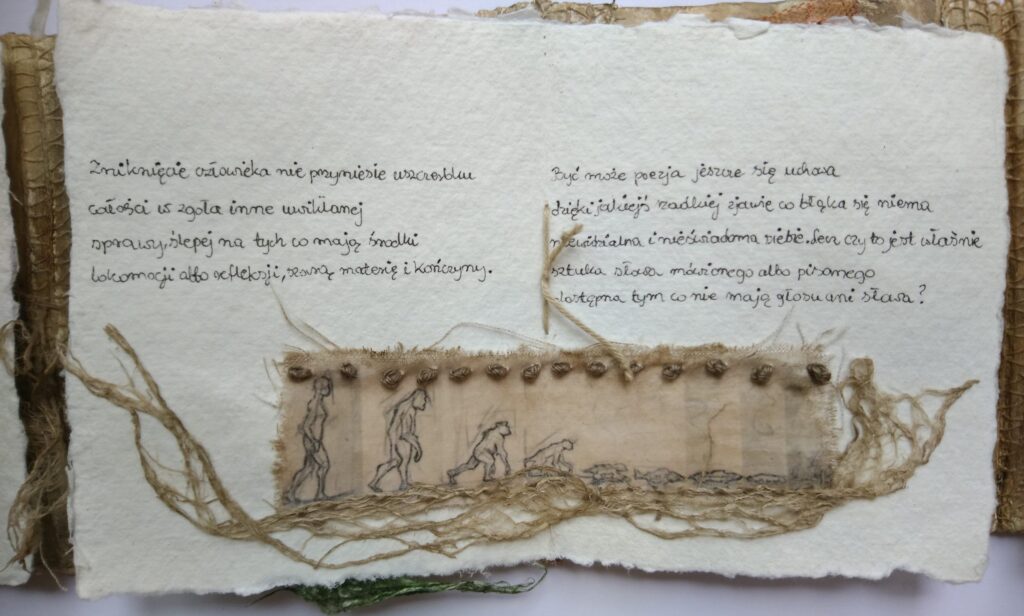 Zniknięcie człowieka nie przyniesie uszczerbku
całości w zgoła inne uwikłanej
sprawy, ślepej na tych co mają środki
lokomocji albo refleksji, szarą materię i kończyny.
Być może poezja jeszcze się uchowa
dzięki jakiejś rzadkiej zjawie co błąka się niema
niewidzialna i nieświadoma siebie. Lecz czy to jest właśnie
sztuka słowa mówionego albo pisanego
dostępna tym co nie mają głosu ani słowa?